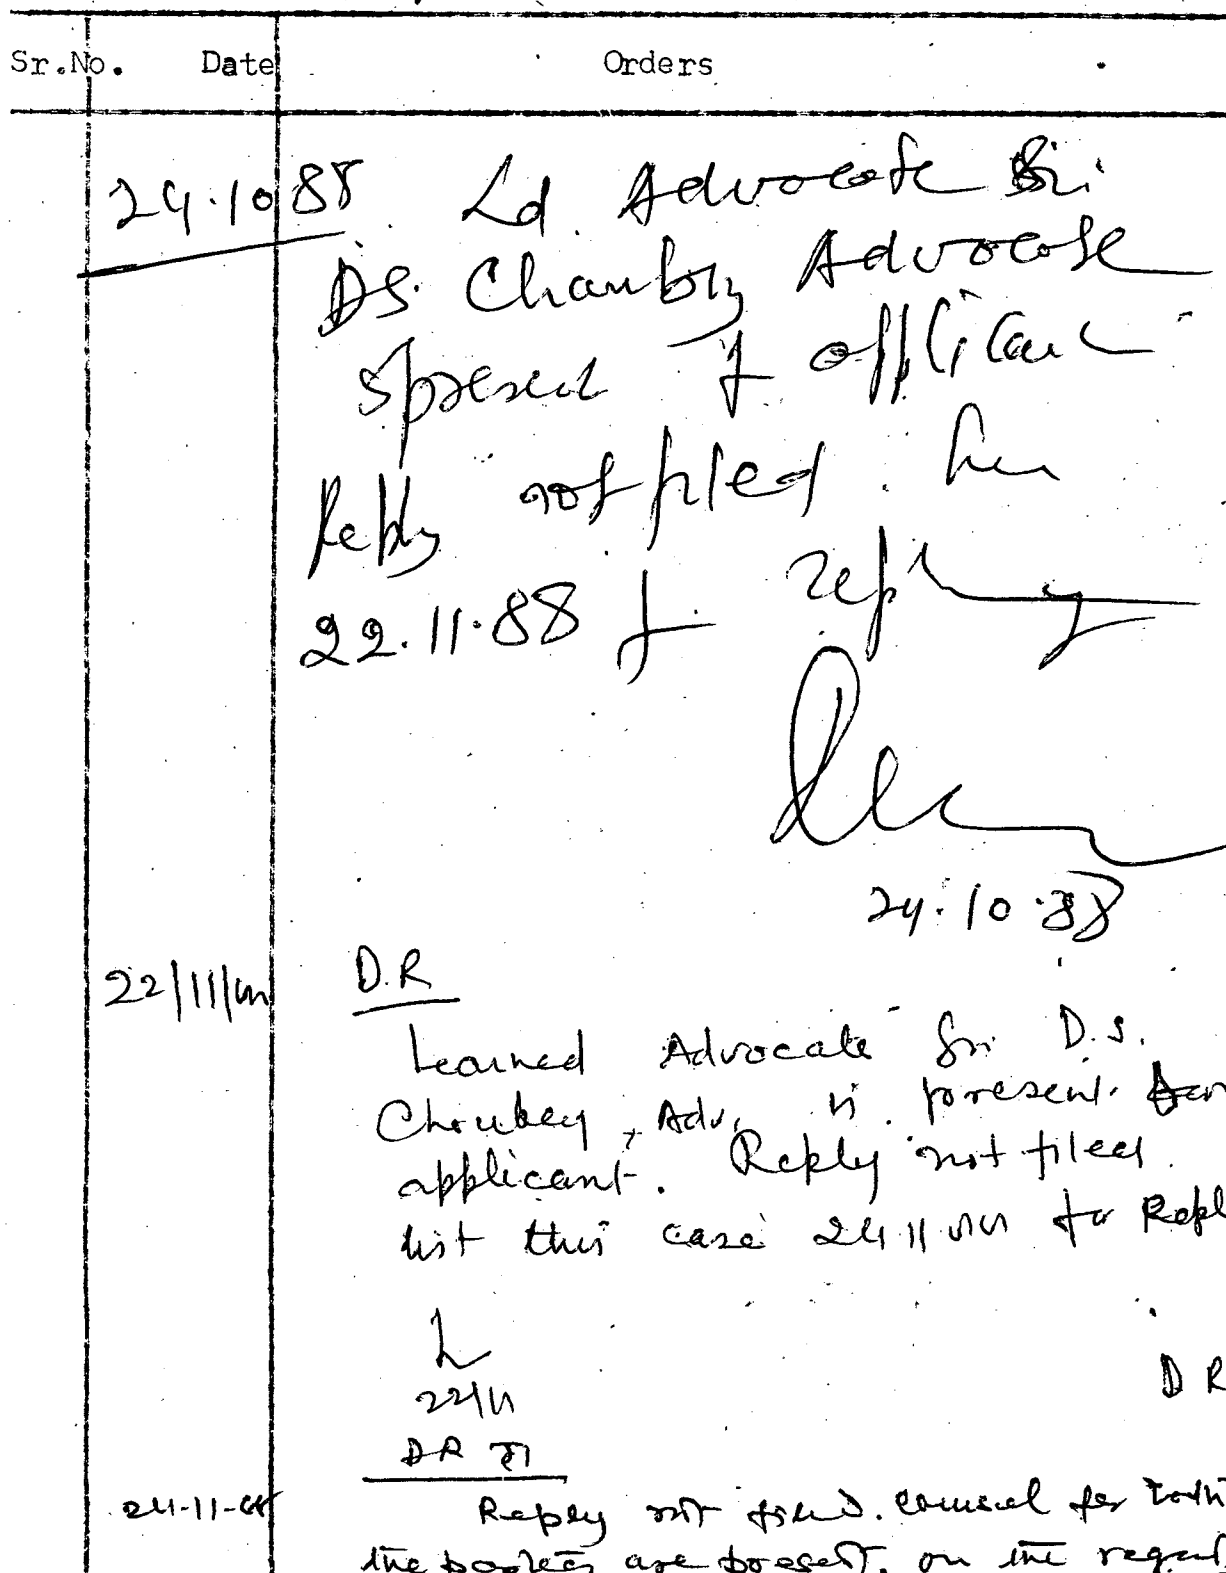 Sr.No. Date Orders
24.10.88 Ld. Advocate Sri
D.S. Chaubey Advocate
present f applicant
Reply not filed.
22.11.88 f reply
24.10.88
22/11/ D.R
Learned Advocate Sri D.S.
Choubey, Adv. is present for
applicant. Reply not filed.
list this case 24 11 for Repl
22/11
D R
DR
24-11-88 Reply not filed. Counsel for both
the parties are present. on the